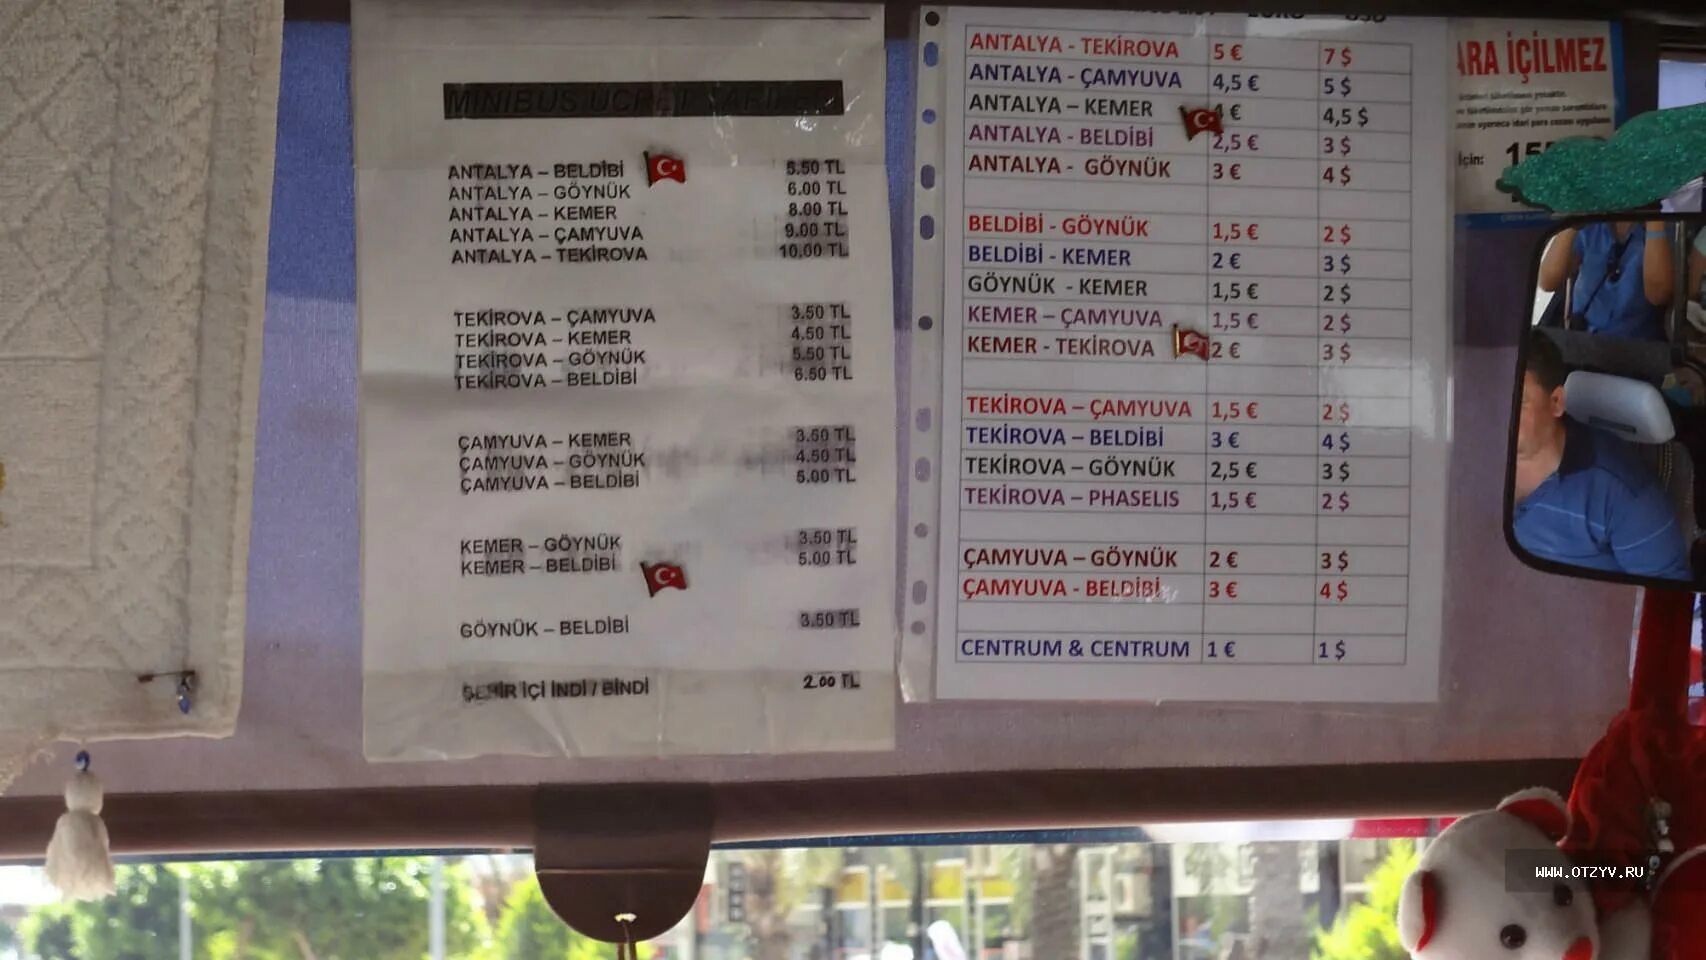 MİNİBÜS ÜCRET TARİFESİ
ANTALYA – BELDİBİ 5.50 TL
ANTALYA – GÖYNÜK 6.00 TL
ANTALYA – KEMER 8.00 TL
ANTALYA – ÇAMYUVA 9.00 TL
ANTALYA – TEKİROVA 10.00 TL
TEKİROVA – ÇAMYUVA 3.50 TL
TEKİROVA – KEMER 4.50 TL
TEKİROVA – GÖYNÜK 5.50 TL
TEKİROVA – BELDİBİ 6.50 TL
ÇAMYUVA – KEMER 3.50 TL
ÇAMYUVA – GÖYNÜK 4.50 TL
ÇAMYUVA – BELDİBİ 5.00 TL
KEMER – GÖYNÜK 3.50 TL
KEMER – BELDİBİ 5.00 TL
GÖYNÜK – BELDİBİ 3.50 TL
ŞEHİR İÇİ İNDİ / BİNDİ 2.00 TL
EURO USD
ANTALYA - TEKİROVA 5 € 7 $
ANTALYA - ÇAMYUVA 4,5 € 5 $
ANTALYA – KEMER 4 € 4,5 $
ANTALYA - BELDİBİ 2,5 € 3 $
ANTALYA - GÖYNÜK 3 € 4 $
BELDİBİ - GÖYNÜK 1,5 € 2 $
BELDİBİ - KEMER 2 € 3 $
GÖYNÜK - KEMER 1,5 € 2 $
KEMER – ÇAMYUVA 1,5 € 2 $
KEMER - TEKİROVA 2 € 3 $
TEKİROVA – ÇAMYUVA 1,5 € 2 $
TEKİROVA – BELDİBİ 3 € 4 $
TEKİROVA – GÖYNÜK 2,5 € 3 $
TEKİROVA – PHASELIS 1,5 € 2 $
ÇAMYUVA – GÖYNÜK 2 € 3 $
ÇAMYUVA - BELDİBİ 3 € 4 $
CENTRUM & CENTRUM 1 € 1 $
ARA İÇİLMEZ
için:
WWW.OTZYV.RU